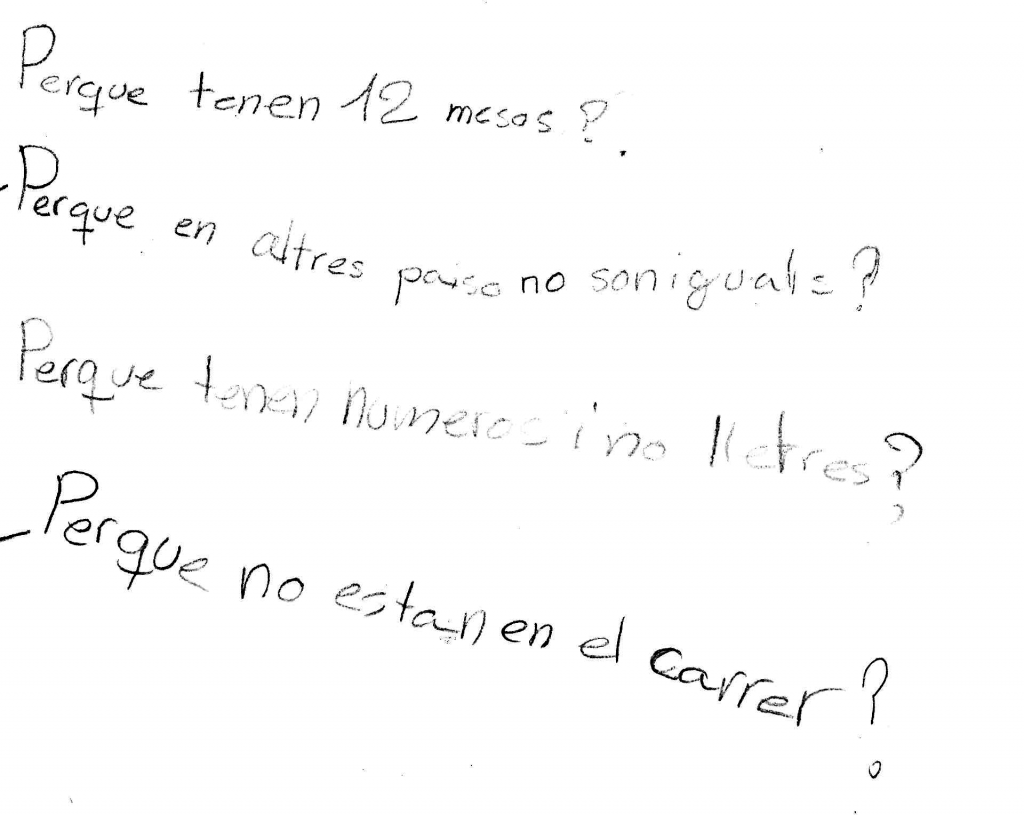 Perque tenen 12 mesos?.
-Perque en altres paiso no son iguals?
Perque tenen numeros i no lletres?
-Perque no estan en el carrer?